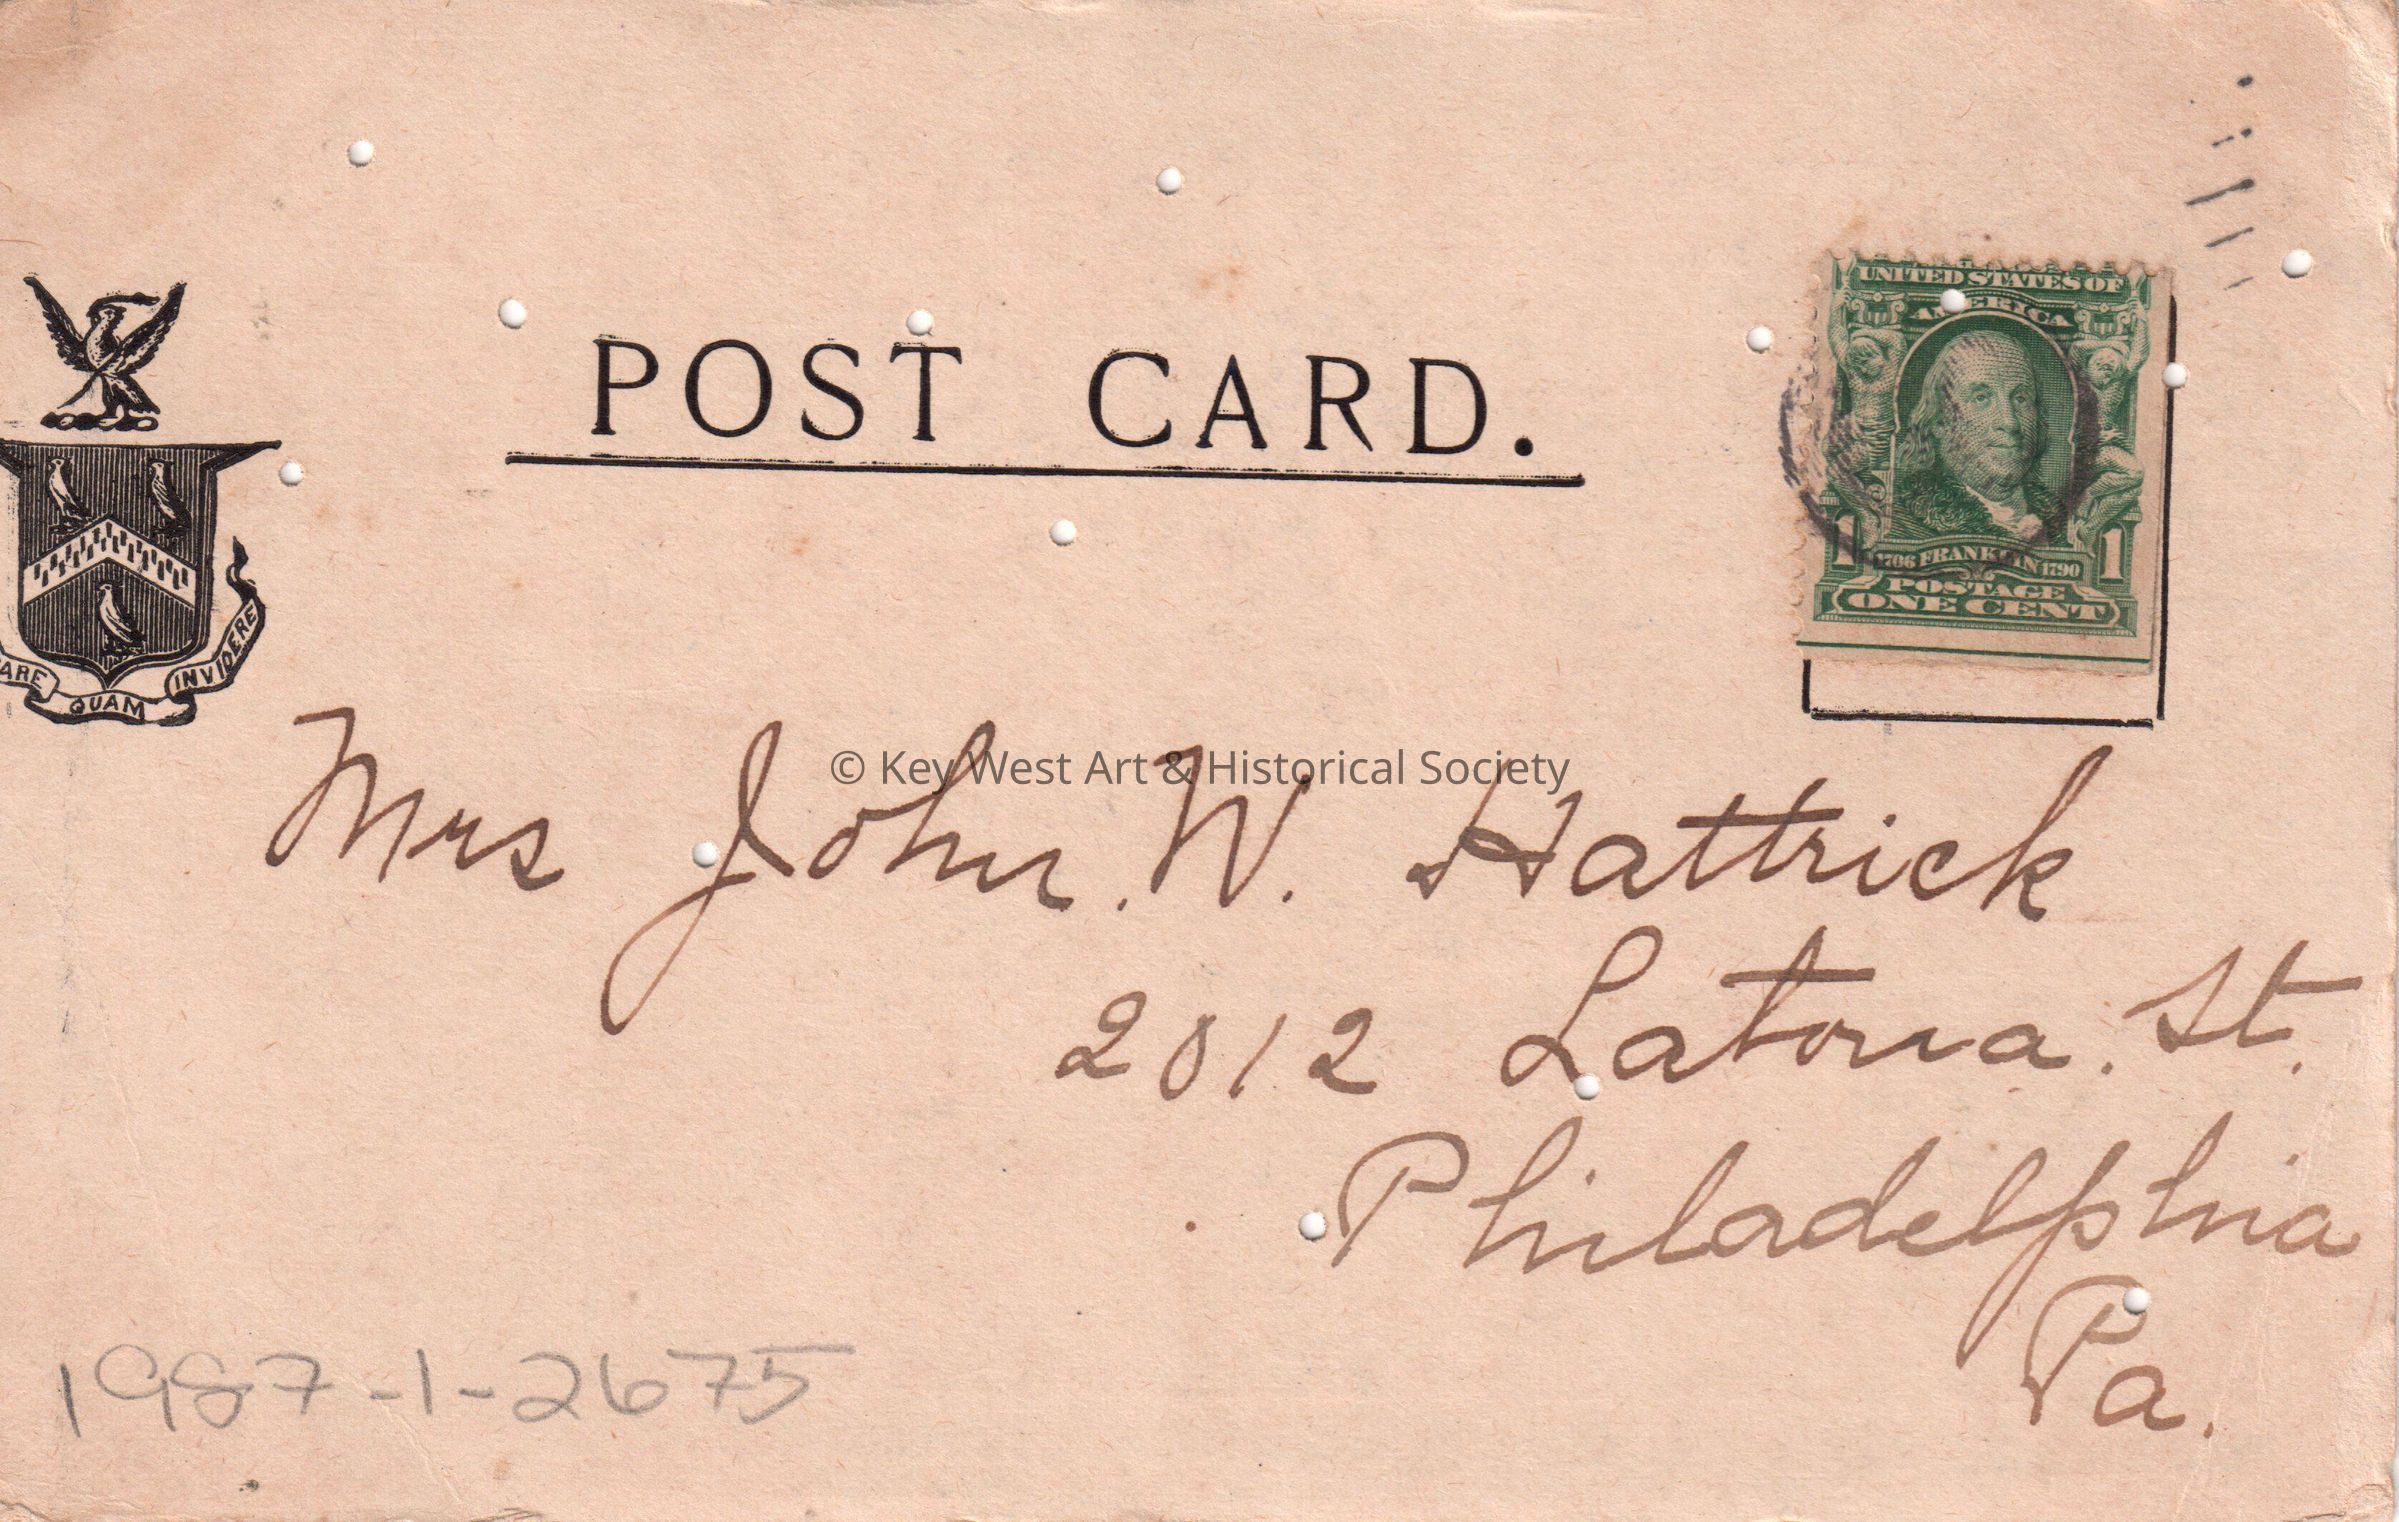 POST CARD.
UNITED STATES OF
AMERICA
1 1706 FRANKLIN 1790 1
POSTAGE
ONE CENT
QUAM INVIDERE
© Key West Art & Historical Society
Mrs John. W. Hattrick
2012 Latona. St.
Philadelphia
Pa.
1987-1-2675